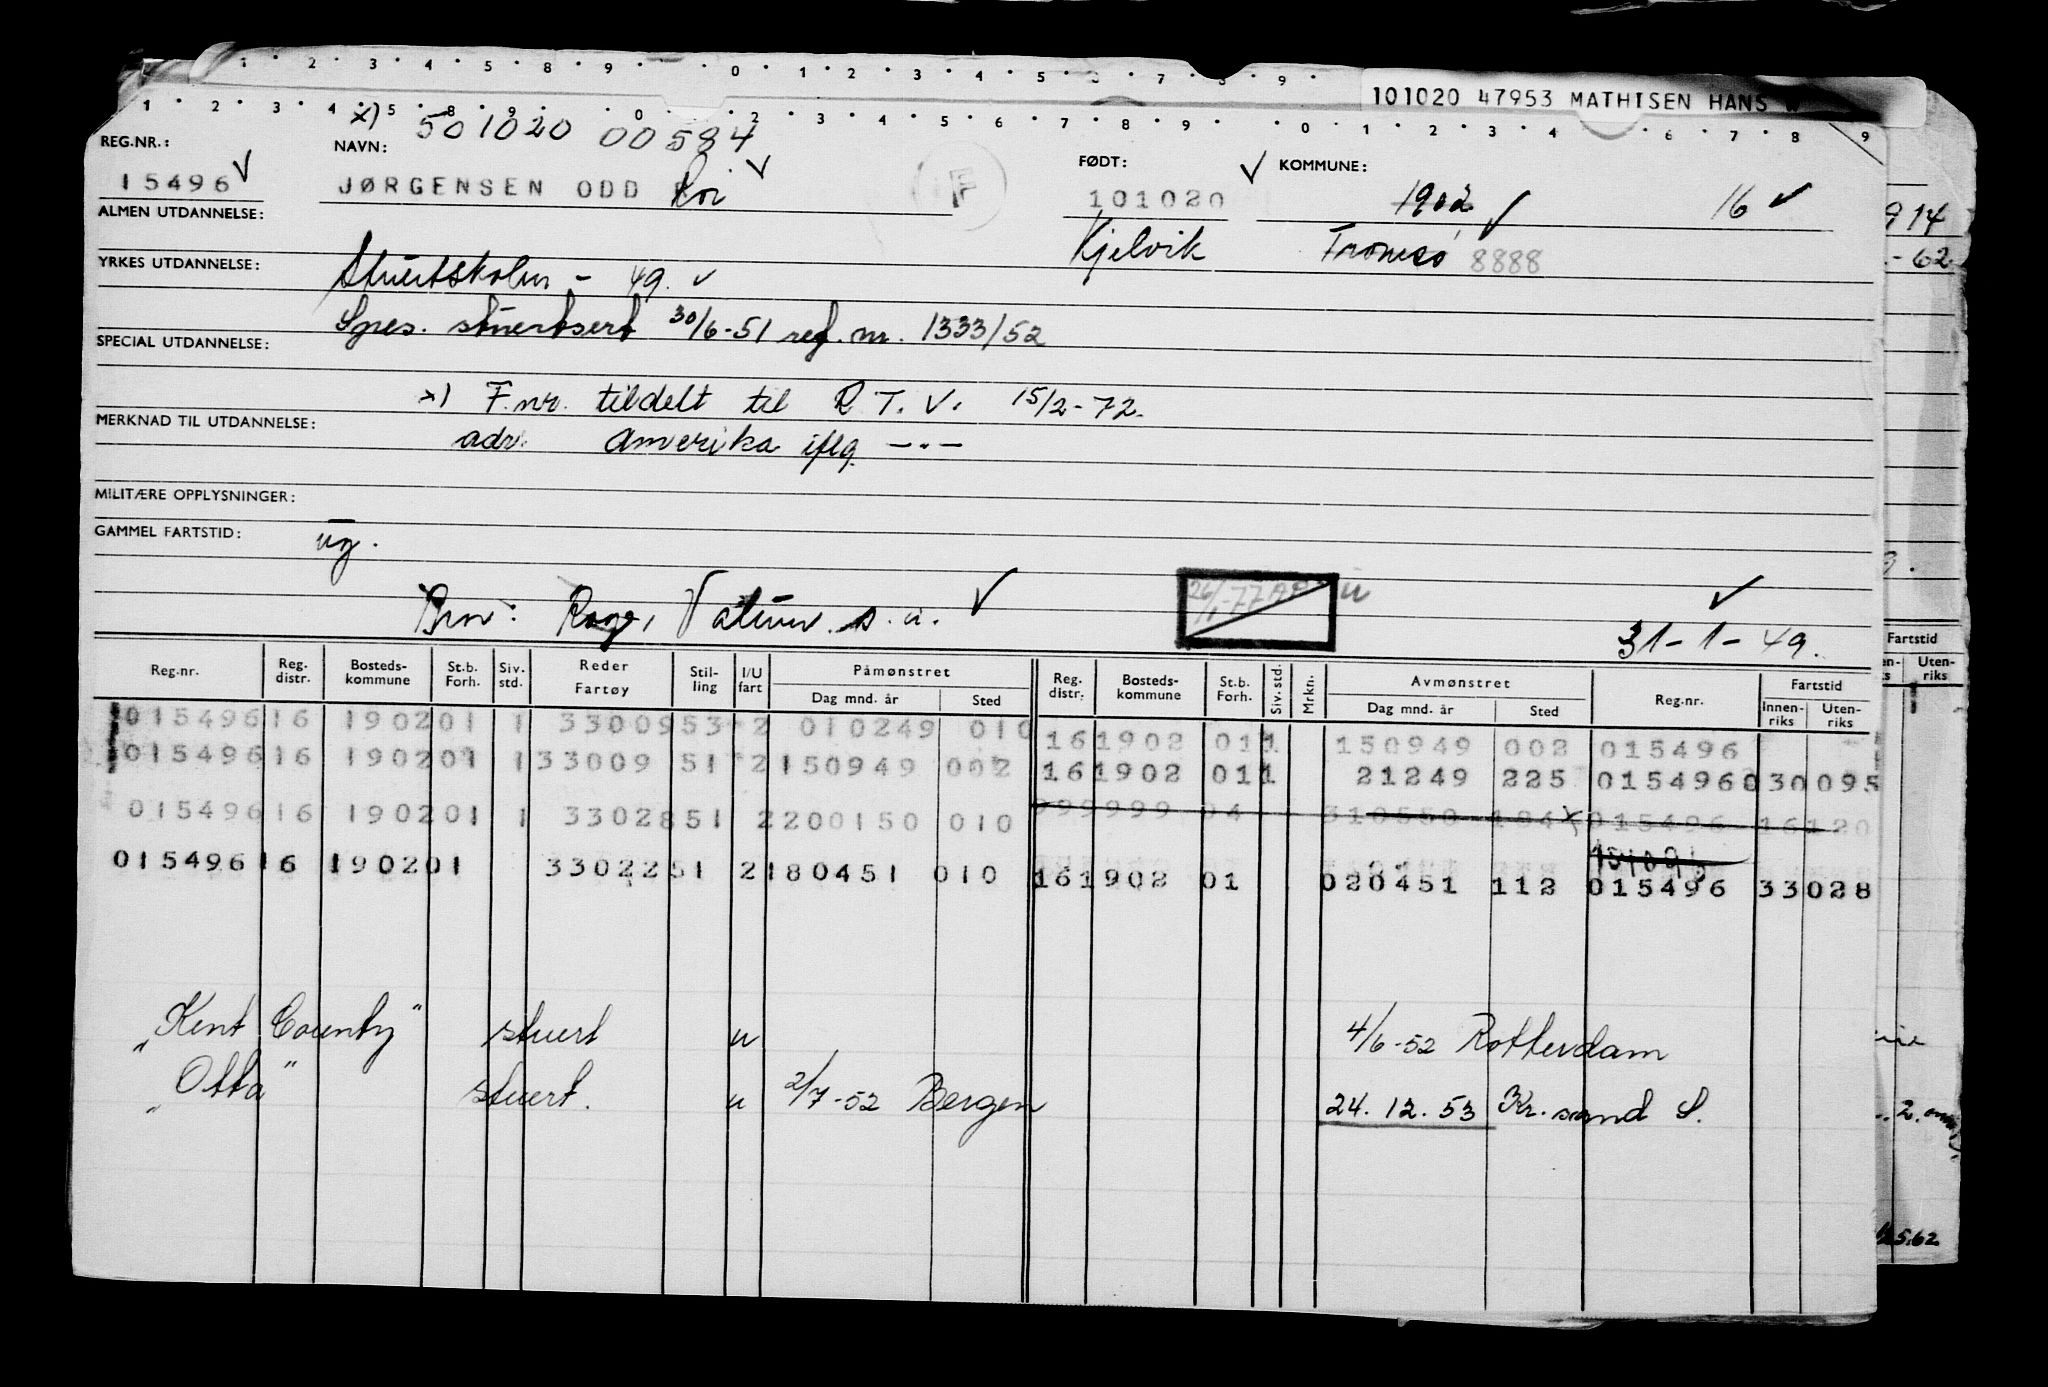 1 2 3 4 5 8 9 0 1 2 3 4 5 6 7 9
101020 47953 MATHISEN HANS W
1 2 3 4 5 8 9 0 2 3 4 5 6 7 8 9 0 1 2 3 4 6 7 8 9
x) 501020 00584
REG.NR.: NAVN: FØDT: KOMMUNE:
15496 JØRGENSEN ODD Roi F 101020 1902 16
ALMEN UTDANNELSE: Kjelvik Tromsø 8888
YRKES UTDANNELSE: Stuertskolen - 49.
Spes. stuertsert 30/6-51 reg. nr. 1333/52
SPECIAL UTDANNELSE:
x) F.nr. tildelt til R.T.V. 15/2-72.
MERKNAD TIL UTDANNELSE:
adr. Amerika iflg. —"—
MILITÆRE OPPLYSNINGER:
GAMMEL FARTSTID: ug.
Bror: s. a.
31-1-49.
Reg.nr. Reg. distr. Bosteds-kommune St.b. Forh. Siv. std. Reder Fartøy Stil-ling I/U fart Påmønstret Dag mnd. år Sted Reg. distr. Bosteds-kommune St.b. Forh. Siv. std. Mrkn. Avmønstret Dag mnd. år Sted Reg.nr. Fartstid Innen-riks Uten-riks
015496 16 1902 01 1 33009 53 2 010249 010 16 1902 01 1 150949 002 015496
015496 16 1902 01 1 33009 51 2 150949 002 16 1902 01 1 21249 225 015496 030095
015496 16 1902 01 1 33028 51 2 200150 010 999999 04 310550 184 015496 16120
015496 16 1902 01 33022 51 2 180451 010 16 1902 01 020451 112 015496 33028
"Kent County" stuert u 4/6-52 Rotterdam
"Otta" stuert. u 2/7-52 Bergen 24.12.53 Kr.sand S.
914
-62
Fartstid
Uten-riks